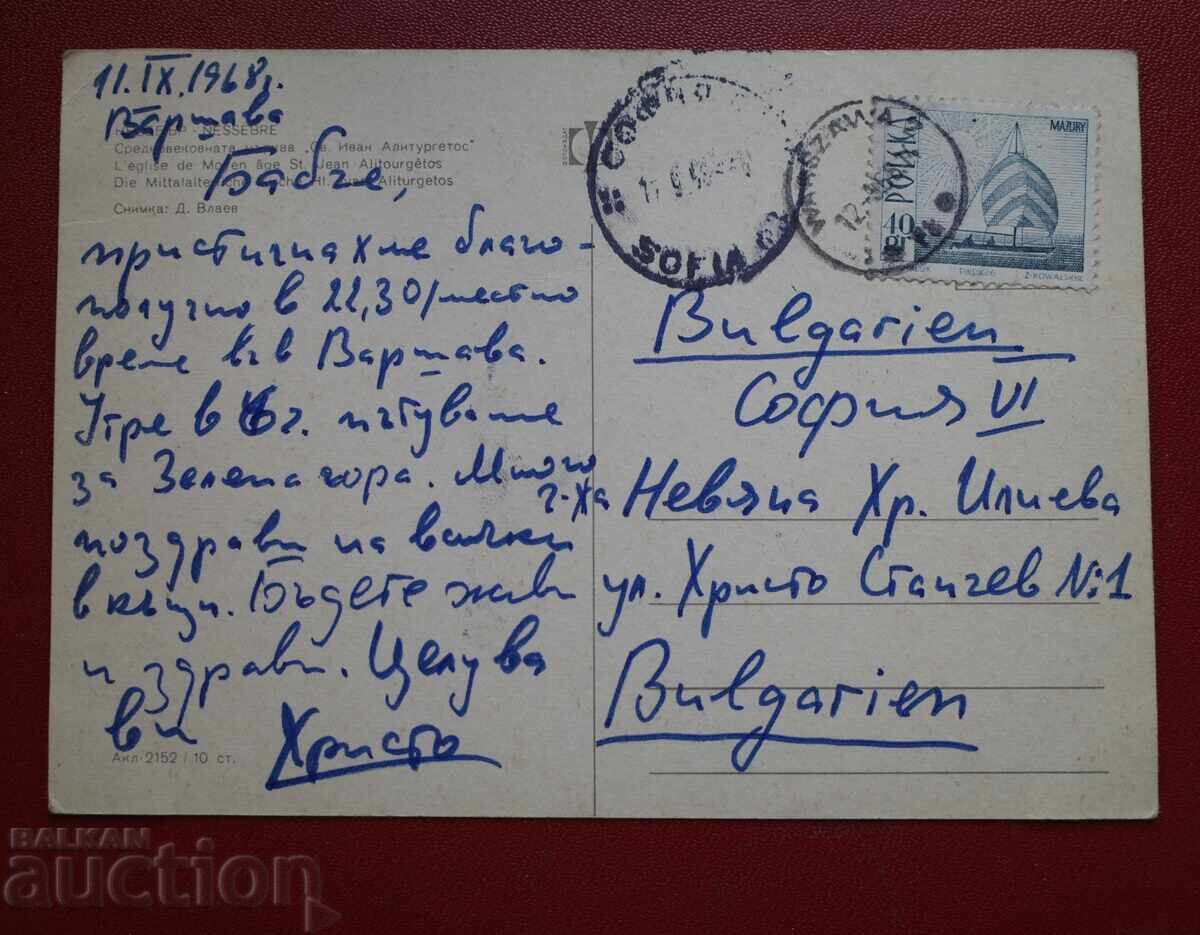 11.IX.1968г.
Варшава
NESSEBRE
Средновековната "Св. Иван Алитургетос"
L'église de Moyen âge St. Jean Alitourgètos
Die Hl. Aliturgetos
Снимка: Д. Влаев
Бабче,
пристигнахме благо-
получно в 22,30/местно
време във Варшава.
Утре в 6г. пътуваме
за Зелена гора. Много
поздрави на всички
в къщи. Бъдете живи
и здрави. Целува
ви Христо
Акл-2152 / 10 ст.
СОФИЯ
SOFIA
WARSZAWA
12
POLSKA
40 gr
MAZURY
Bulgarien
София VI
г-жа Невяна Хр. Илиева
ул. Христо Станчев №1
Bulgarien
BALKAN
auction